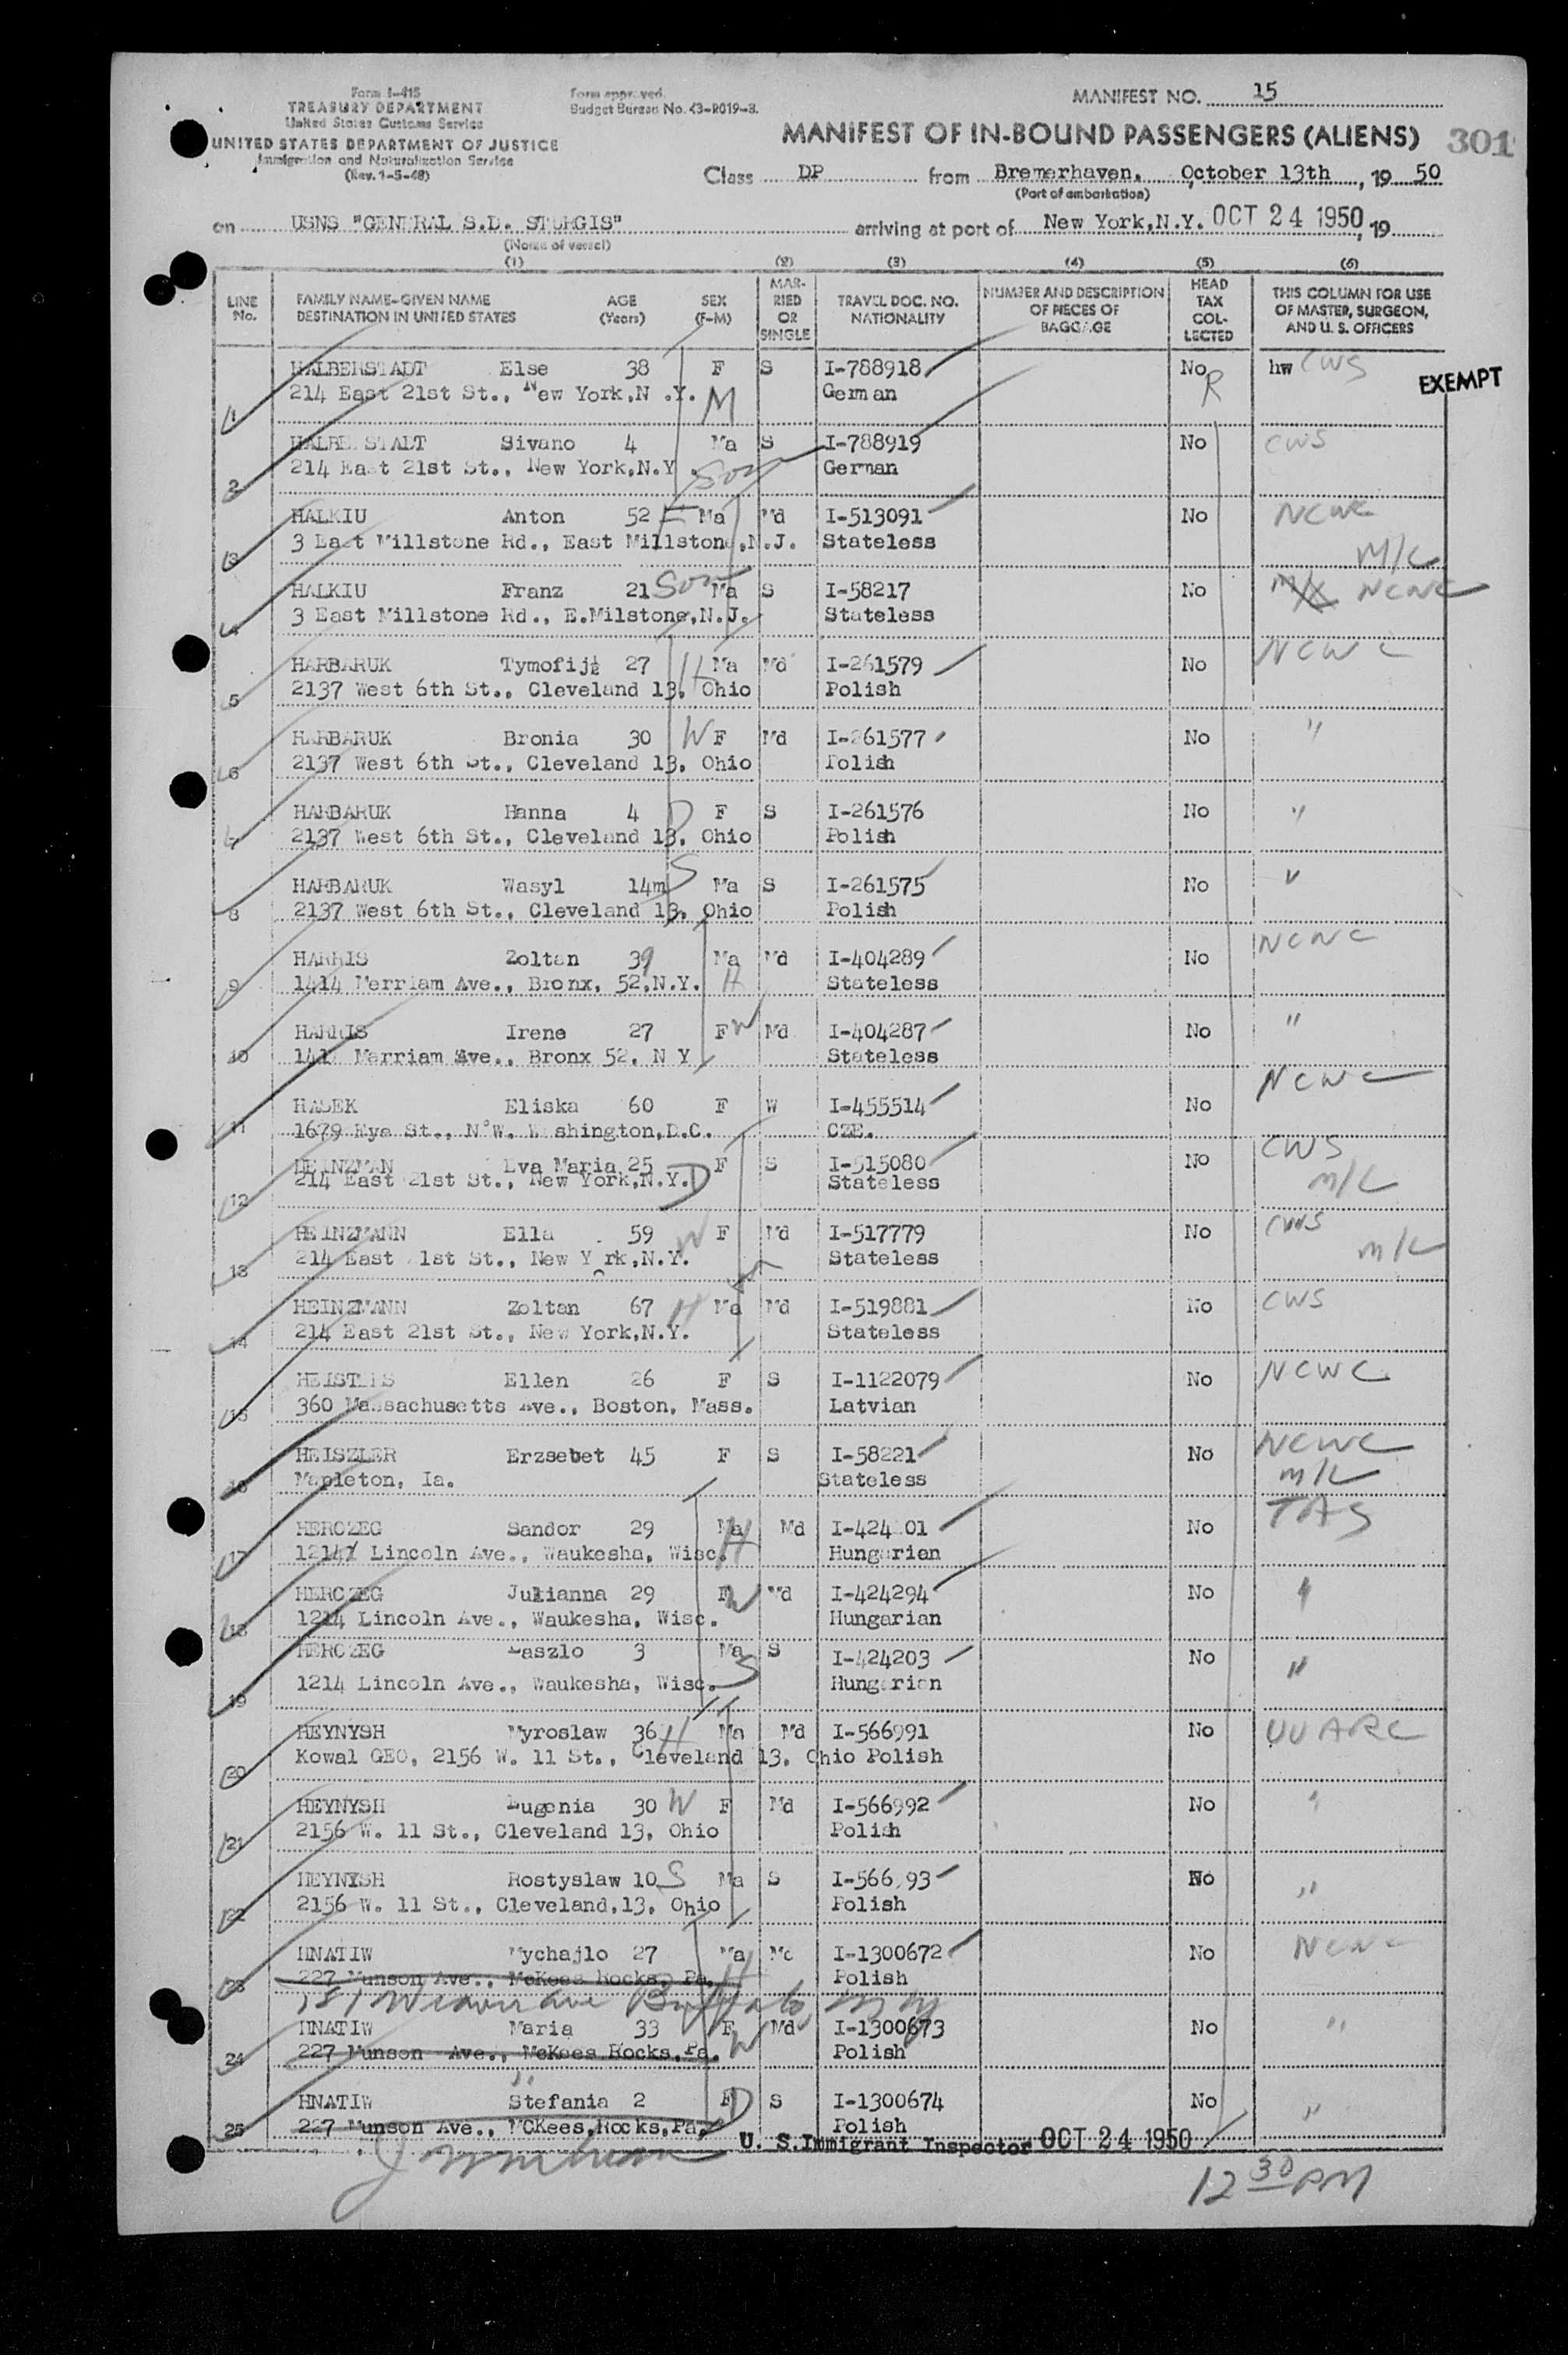 Form I-415
TREASURY DEPARTMENT
United States Customs Service
UNITED STATES DEPARTMENT OF JUSTICE
Immigration and Naturalization Service
(Rev. 1-5-48)
Form approved.
Budget Bureau No. 43-R019-3.
MANIFEST NO. 15
MANIFEST OF IN-BOUND PASSENGERS (ALIENS) 301
Class DP from Bremerhaven, October 13th, 19 50
(Port of embarkation)
on USNS "GENERAL S.D. STURGIS" arriving at port of New York,N.Y. OCT 24 1950, 19
(Name of vessel)
(1) (2) (3) (4) (5) (6)
LINE No. FAMILY NAME-GIVEN NAME DESTINATION IN UNITED STATES AGE (Years) SEX (F-M) MARRIED OR SINGLE TRAVEL DOC. NO. NATIONALITY NUMBER AND DESCRIPTION OF PIECES OF BAGGAGE HEAD TAX COLLECTED THIS COLUMN FOR USE OF MASTER, SURGEON, AND U. S. OFFICERS
HALBERSTADT Else 38 F S I-788918 No hw CWS
EXEMPT
1 214 East 21st St., New York,N .Y. M German R
HALBE STADT Sivano 4 Ma S I-788919 No CWS
2 214 East 21st St., New York,N.Y son German
HALKIU Anton 52 F Ma Md I-513091 No NCWC
3 3 East Millstone Rd., East Millstone,N.J. Stateless M/L
HALKIU Franz 21 Son Ma S I-58217 No NCWC
4 3 East Millstone Rd., E.Milstone,N.J. Stateless
HARBARUK Tymofij 27 H Ma Md I-261579 No NCWC
5 2137 West 6th St., Cleveland 13, Ohio Polish
HARBARUK Bronia 30 W F Md I-261577 No "
6 2137 West 6th St., Cleveland 13, Ohio Polish
HARBARUK Hanna 4 D F S I-261576 No "
7 2137 West 6th St., Cleveland 13, Ohio Polish
HARBARUK Wasyl 14m S Ma S I-261575 No "
8 2137 West 6th St., Cleveland 13, Ohio Polish
HARRIS Zoltan 39 Ma Md I-404289 No NCWC
9 1414 Merriam Ave., Bronx, 52,N.Y. H Stateless
HARRIS Irene 27 F W Md I-404287 No "
10 Merriam Ave., Bronx 52, N Y Stateless
HASEK Eliska 60 F W I-455514 No NCWC
11 1679 Eye St., N.W. Washington,D.C. CZE.
HEINZMAN Eva Maria 25 F S I-515080 No CWS
12 214 East 21st St., New York,N.Y. D Stateless M/L
HEINZMANN Ella 59 W F Md I-517779 No CWS
13 214 East 1st St., New York,N.Y. Stateless M/L
HEINZMANN Zoltan 67 H Ma Md I-519881 No CWS
14 214 East 21st St., New York,N.Y. Stateless
Ellen 26 F S I-1122079 No NCWC
15 360 Massachusetts Ave., Boston, Mass. Latvian
HEISZLER Erzsebet 45 F S I-58221 No NCWC
16 Mapleton, Ia. Stateless M/L
HERCZEG Sandor 29 Ma Md I-424 01 No TAS
17 1214 Lincoln Ave., Waukesha, Wisc. H Hungarian
HERCZEG Julianna 29 F W Md I-424294 No "
18 1214 Lincoln Ave., Waukesha, Wisc. Hungarian
HERCZEG Laszlo 3 Ma S I-424203 No "
19 1214 Lincoln Ave., Waukesha, Wisc. S Hungarian
HEYNYSH Myroslaw 36 H Ma Md I-566991 No UUARC
20 Kowal GEO, 2156 W. 11 St., Cleveland 13, Ohio Polish
HEYNYSH Eugenia 30 W F Md I-566992 No "
21 2156 W. 11 St., Cleveland 13, Ohio Polish
HEYNYSH Rostyslaw 10 S Ma S I-566 93 No "
22 2156 W. 11 St., Cleveland,13, Ohio Polish
HNATIW Mychajlo 27 Ma Md I-1300672 No NCWC
23 227 Munson Ave., McKees Rocks, Pa. H Polish
151 Weaver ave Buffalo, NY
HNATIW Maria 33 F Md I-1300673 No "
24 227 Munson Ave., McKees Rocks,Pa. W Polish
"
HNATIW Stefania 2 F D S I-1300674 No "
25 227 Munson Ave., MCKees,Rocks,Pa, Polish
U. S. Immigrant Inspector OCT 24 1950
12 30 PM